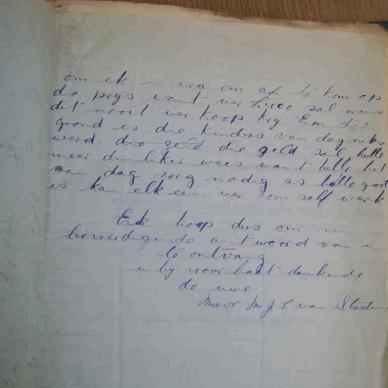 om ek u vra om af te kom op
die prys want vir £1400 sal mens
dit nooit ver koop kry. En die
grond is die kinders van dag niks
werd. die geld sal hulle
meer dinliker wees want hulle het
van dag sorg nodig as hulle groot
is kan elk een ver hom self werk
Ek hoop dus om 'n
bevredigende antwoord van u
te ontvang
u by voorbaat dankende
de uwe
Mevr M. J. C. van Staden